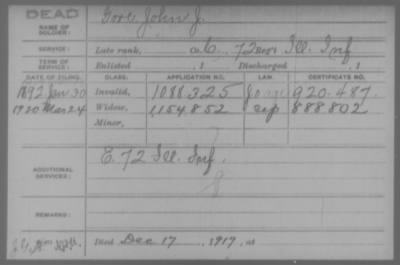 DEAD
NAME OF SOLDIER: Gore John J.
SERVICE: Late rank, Co. 72 Ill. Inf.
TERM OF SERVICE: Enlisted , 1 Discharged , 1
DATE OF FILING. CLASS. APPLICATION NO. LAW. CERTIFICATE NO.
1892 Jan 30 Invalid, 1088325 920.487
1920 Mar 24 Widow, 1,154,852 888802
Minor,
ADDITIONAL SERVICES: E. 72 Ill. Inf.
REMARKS:
Died Dec 17, 1917, at